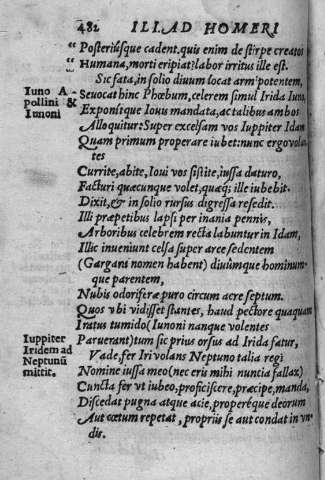 482 ILIAD HOMERI
“ Posteriúsque cadent. quis enim de stirpe creatos
“ Humana, morti eripiat? labor irritus ille est.
Sic fata, in solio diuum locat armipotentem,
Iuno A-
pollini &
Iunoni
Seuocat hinc Phœbum, celerem simul Irida Iuno,
Exponítque Iouis mandata, ac talibus ambos
Alloquitur: Super excelsam vos Iuppiter Idam
Quam primum properare iubet: nunc ergo volan-
tes
Currite, abite, Ioui vos sistite, iussa daturo,
Facturi quæcunque volet, quæq; ille iubebit.
Dixit, & in solio rursus digressa resedit.
Illi præpetibus lapsi per inania pennis,
Arboribus celebrem recta labuntur in Idam,
Illic inueniunt celsa super arce sedentem
(Gargani nomen habent) diuûmque hominum-
que parentem,
Nubis odoriferæ puro circum aere septum.
Quos vbi vidisset stantes, haud pectore quaquam
Iratus tumido (Iunoni nanque volentes
Iuppiter
Iridem ad
Neptunũ
mittit.
Paruerant) tum sic prius orsus ad Irida fatur,
Vade, fer Iri volans Neptuno talia regi
Nomine iussa meo (nec eris mihi nuncia fallax)
Cuncta fer vt iubeo, proficiscere, præcipe, manda,
Discedat pugna atque acie, properéque deorum
Aut cœtum repetat, propriis se aut condat in vn-
dis.